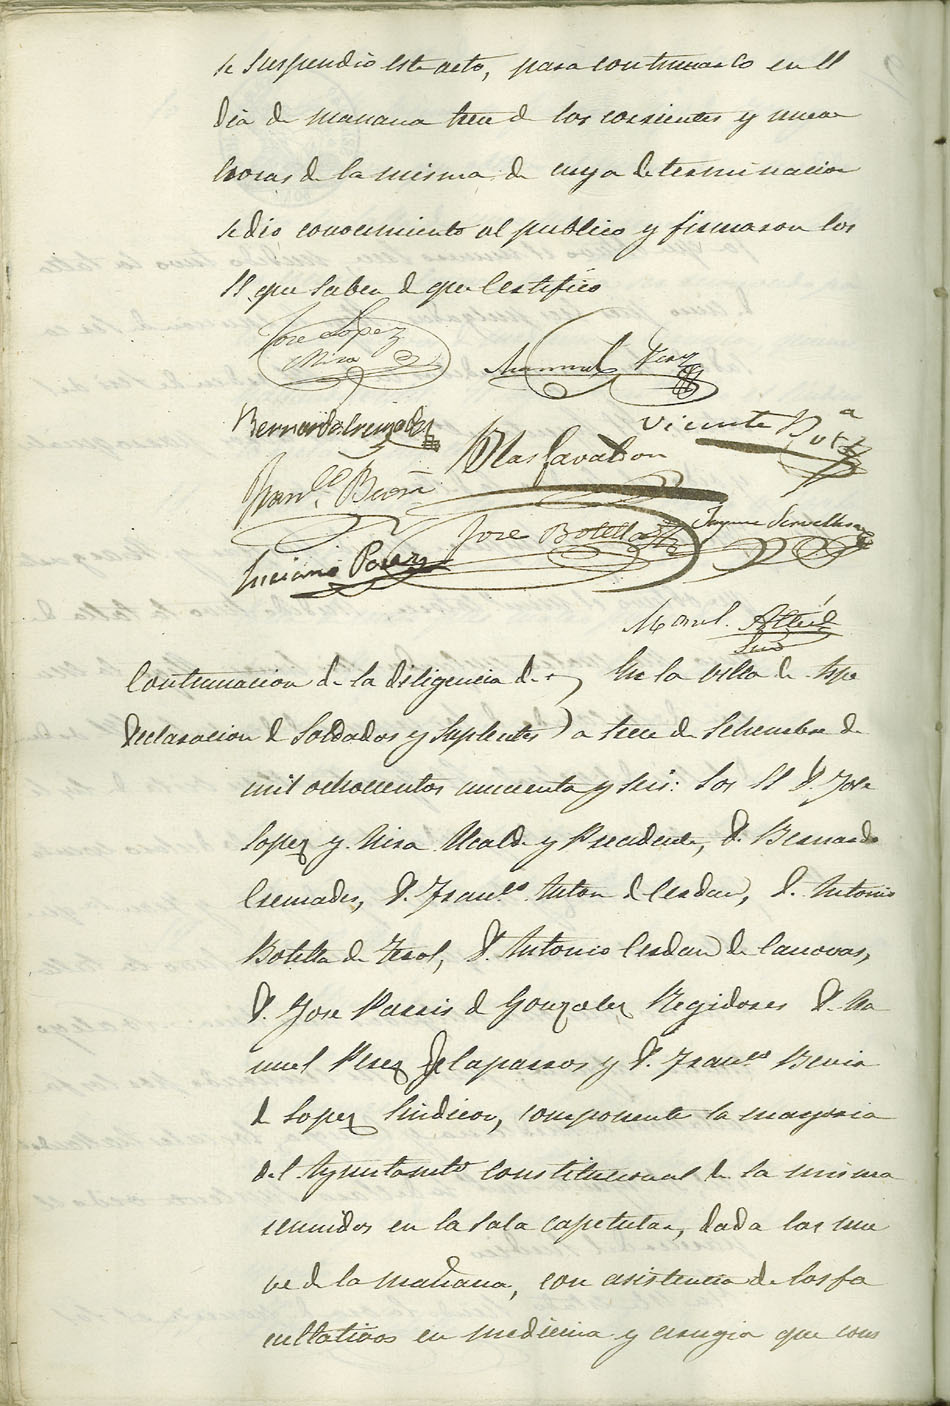 se suspendio este acto, para continuarlo en el
dia de mañana trece de los corrientes y nueve
horas de la misma de cuya determinacion
se dio conocimiento al publico y firmaron los
SS. que saben de que Certifico
Jose Lopez
Mira
Manuel Perez
Bernardo Cremades
Vicente
Blas Gavaldon
Franco
Jose Botella
Luciano Perez
Manl.
Continuacion de la diligencia de En la Villa de Aspe
declaracion de Soldados y Suplentes a trece de Setiembre de
mil ochocientos cincuenta y seis: Los SS D. Jose
Lopez y Mira Alcalde y Presidente, D. Bernardo
Cremades, D. Franco Anton de Cerdan, D. Antonio
Botella de Terol, D. Antonio Cerdan de Canovas,
D. Jose Parris de Gonzalez Regidores D. Ma
nuel Perez y D. Franco
de Lopez Sindicos, componente la mayoria
del Ayuntamto constitucional de la misma
reunidos en la sala capitular, dada las nue
ve de la mañana, con asistencia de los fa
cultativos en medicina y cirugia que cons